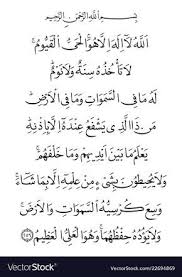 بِسْمِ اللَّهِ الرَّحْمَنِ الرَّحِيمِ
اللَّهُ لَا إِلَهَ إِلَّا هُوَ الْحَيُّ الْقَيُّومُ
لَا تَأْخُذُهُ سِنَةٌ وَلَا نَوْمٌ
لَهُ مَا فِي السَّمَوَاتِ وَمَا فِي الْأَرْضِ
مَنْ ذَا الَّذِي يَشْفَعُ عِنْدَهُ إِلَّا بِإِذْنِهِ
يَعْلَمُ مَا بَيْنَ أَيْدِيهِمْ وَمَا خَلْفَهُمْ
وَلَا يُحِيطُونَ بِشَيْءٍ مِنْ عِلْمِهِ إِلَّا بِمَا شَاءَ
وَسِعَ كُرْسِيُّهُ السَّمَوَاتِ وَالْأَرْضَ
وَلَا يَئُودُهُ حِفْظُهُمَا وَهُوَ الْعَلِيُّ الْعَظِيمُ
VectorStock
VectorStock.com/22694869